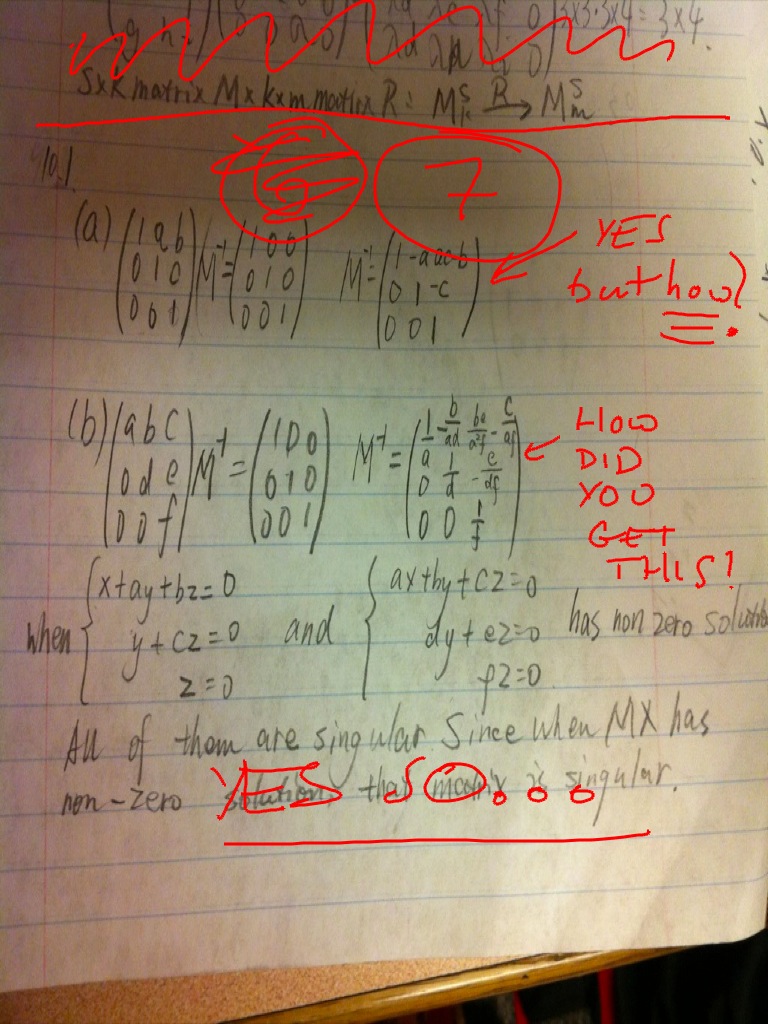 0 3x3·3x4=3x4.
SxK matrix M x kxm matrix R: M^S_k R→ M^S_m
10.1
7
(a) (1 a b
0 1 0
0 0 1) M⁻¹ = (1 0 0
0 1 0
0 0 1) M⁻¹ = (1 -a ac-b
0 1 -c
0 0 1)
YES
but how?
(b) (a b c
0 d e
0 0 f) M⁻¹ = (1 0 0
0 1 0
0 0 1) M⁻¹ = (1/a -b/ad be/a²f - c/af
0 1/d -e/df
0 0 1/f)
HOW
DID
YOU
GET
THIS!
when { x+ay+bz=0
y+cz=0
z=0
and { ax+by+cz=0
dy+ez=0
fz=0
has non zero solution
All of them are singular Since when MX has
non-zero solution, that matrix is singular.
YES SO...